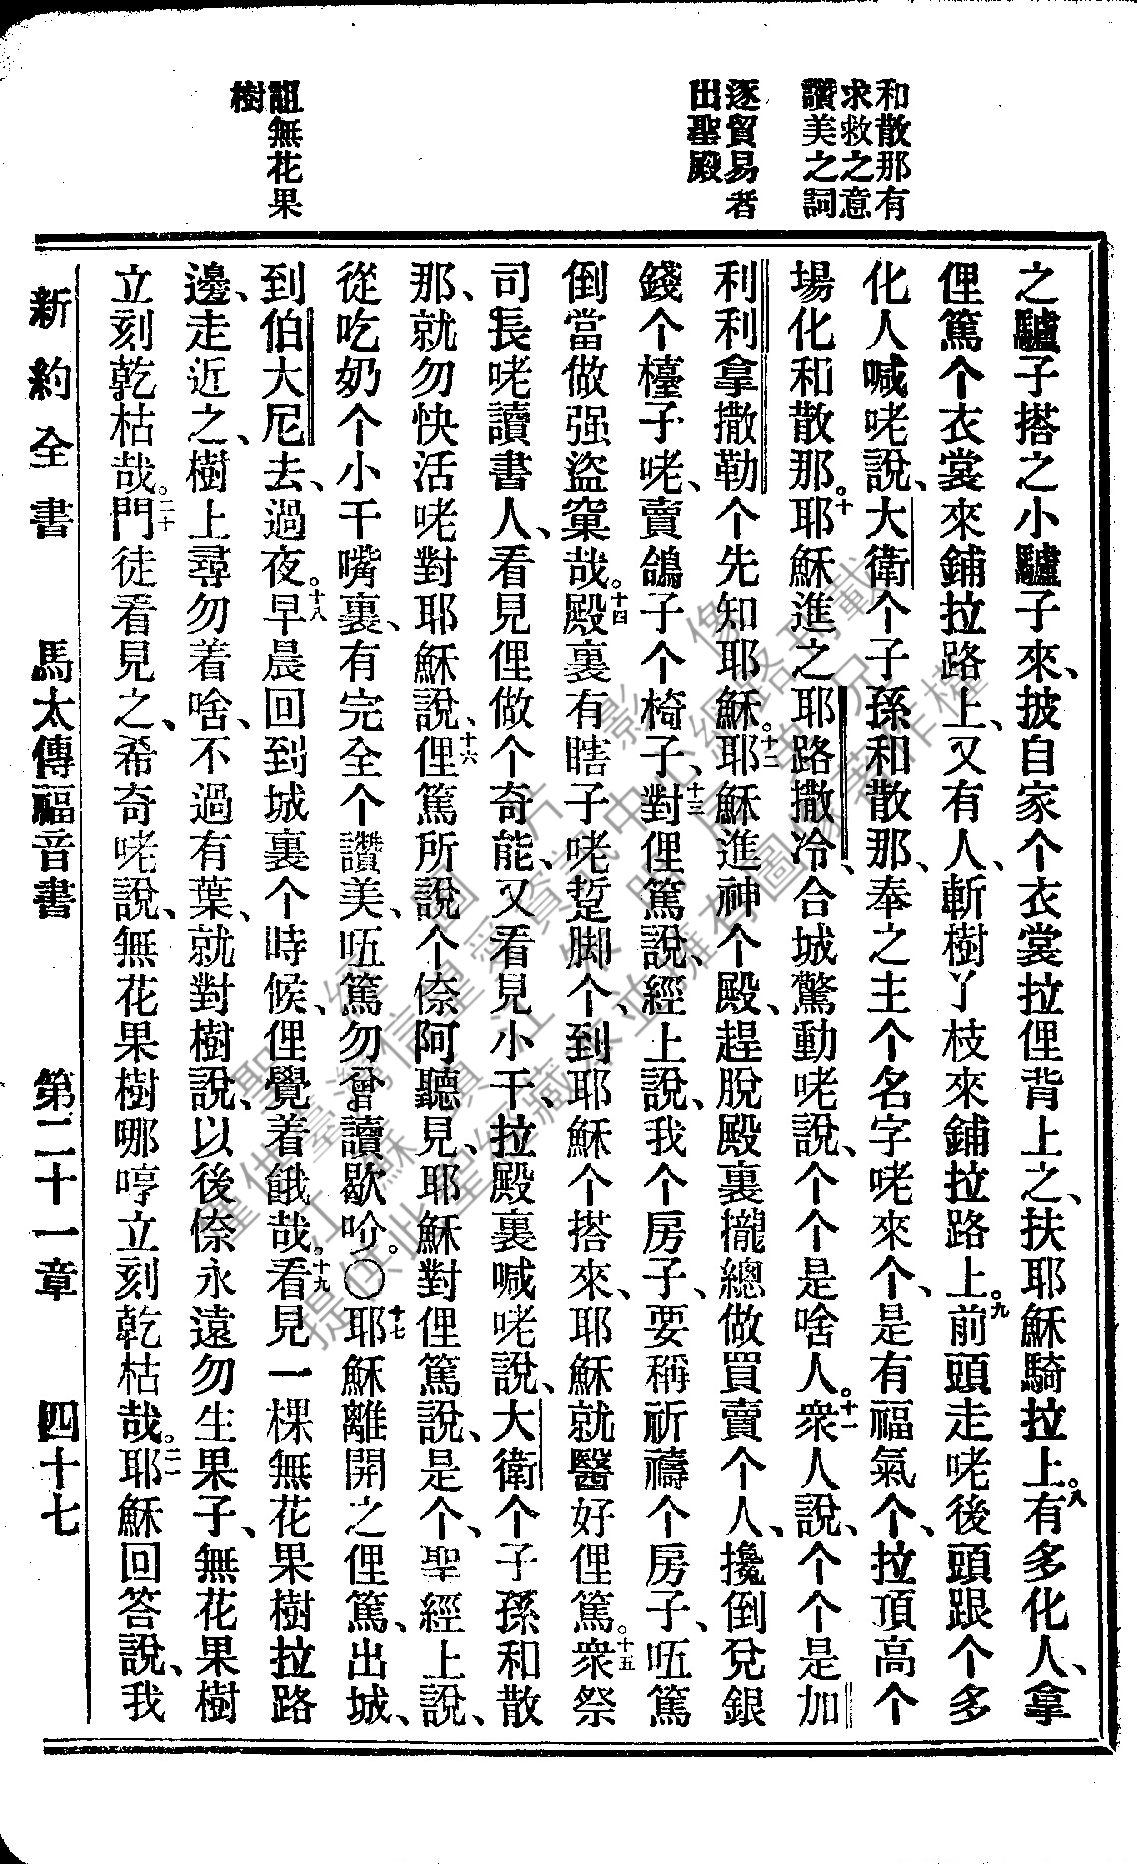 和散那有
求救之意
讚美之詞
逐貿易者
出聖殿
詛無花果
樹
之驢子搭之小驢子來、披自家个衣裳拉俚背上之、扶耶穌騎拉上。八有多化人、拿
俚篤个衣裳來鋪拉路上、又有人、斬樹丫枝來鋪拉路上。九前頭走咾後頭跟个多
化人喊咾說、大衛个子孫和散那、奉之主个名字咾來个、是有福氣个、拉頂高个
場化和散那。十耶穌進之耶路撒冷、合城驚動咾說、个个是啥人。十一衆人說、个个是加
利利拿撒勒个先知耶穌。十二耶穌進神个殿、趕脫殿裏攏總做買賣个人、攙倒兌銀
錢个檯子咾、賣鴿子个椅子、十三對俚篤說、經上說、我个房子、要稱祈禱个房子、㕶篤
倒當做强盜窠哉。十四殿裏有瞎子咾蹔脚个、到耶穌个搭來、耶穌就醫好俚篤。十五衆祭
司長咾讀書人、看見俚做个奇能、又看見小干、拉殿裏喊咾說、大衛个子孫和散
那、就勿快活咾對耶穌說、十六俚篤所說个倷阿聽見、耶穌對俚篤說、是个、聖經上說、
從吃奶个小干嘴裏、有完全个讚美、㕶篤勿曾讀歇吤。〇十七耶穌離開之俚篤、出城、
到伯大尼去、過夜。十八早晨回到城裏个時候、俚覺着餓哉。十九看見一棵無花果樹拉路
邊、走近之、樹上尋勿着啥、不過有葉、就對樹說、以後倷永遠勿生果子、無花果樹
立刻乾枯哉。二十門徒看見之、希奇咾說、無花果樹哪哼立刻乾枯哉。二一耶穌回答說、我
新約全書 馬太傳福音書 第二十一章 四十七
聖經圖片影像
僅供臺灣信望愛資訊中心網路刊載